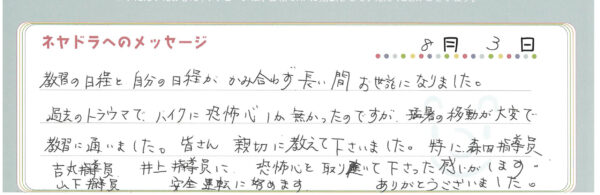 ネヤドラへのメッセージ
8月 3日
教習の日程と自分の日程が かみ合わず 長い間 お世話になりました。
過去のトラウマで、バイクに恐怖心しか無かったのですが、猛暑の移動が大変で
教習に通いました。皆さん 親切に教えて下さいました。特に森田指導員
吉丸指導員 井上指導員に 恐怖心を取り除いて下さった感じがします。
山下指導員 安全運転に努めます ありがとうございました。